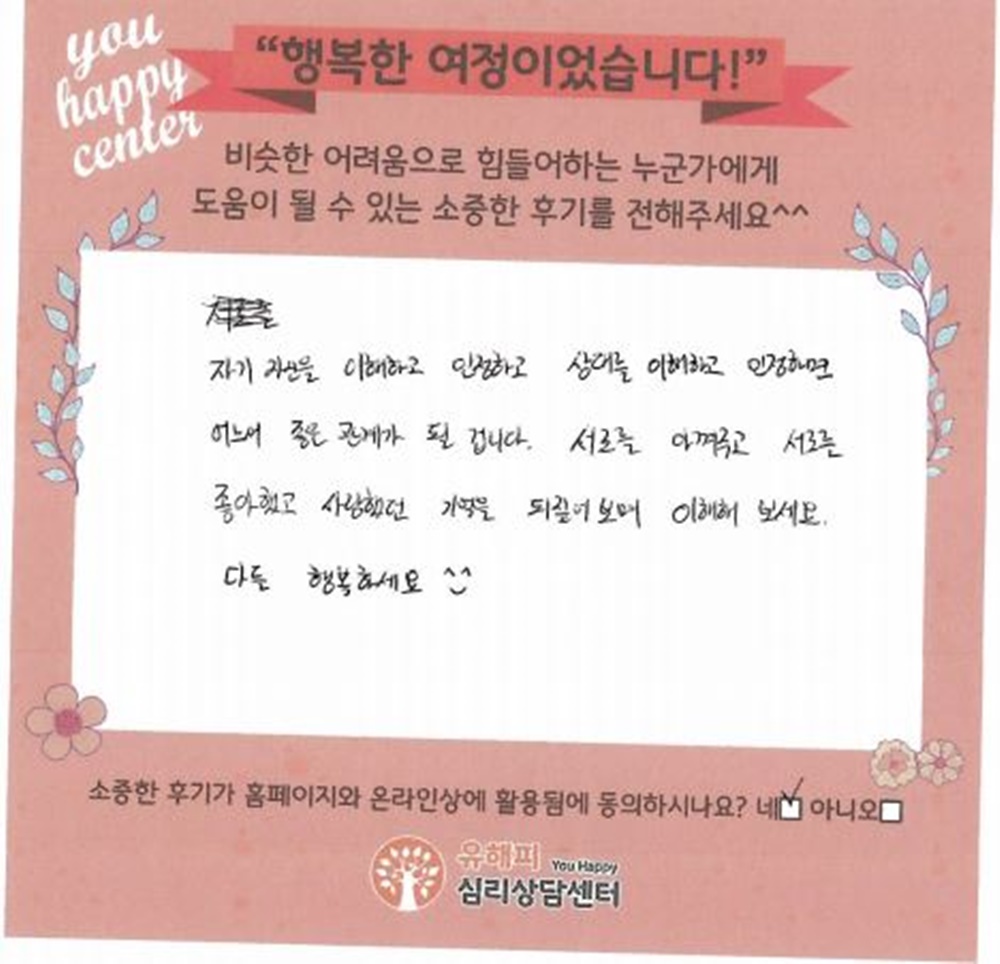 you
happy
center
“행복한 여정이었습니다!”
비슷한 어려움으로 힘들어하는 누군가에게
도움이 될 수 있는 소중한 후기를 전해주세요^^
자기 자신을 이해하고 인정하고 상대를 이해하고 인정하면
어느새 좋은 관계가 될 겁니다. 서로를 아껴주고 서로를
좋아했고 사랑했던 기억을 되짚어보며 이해해 보세요.
다들 행복하세요 ^^
소중한 후기가 홈페이지와 온라인상에 활용됨에 동의하시나요? 네 아니오
유해피 You Happy
심리상담센터